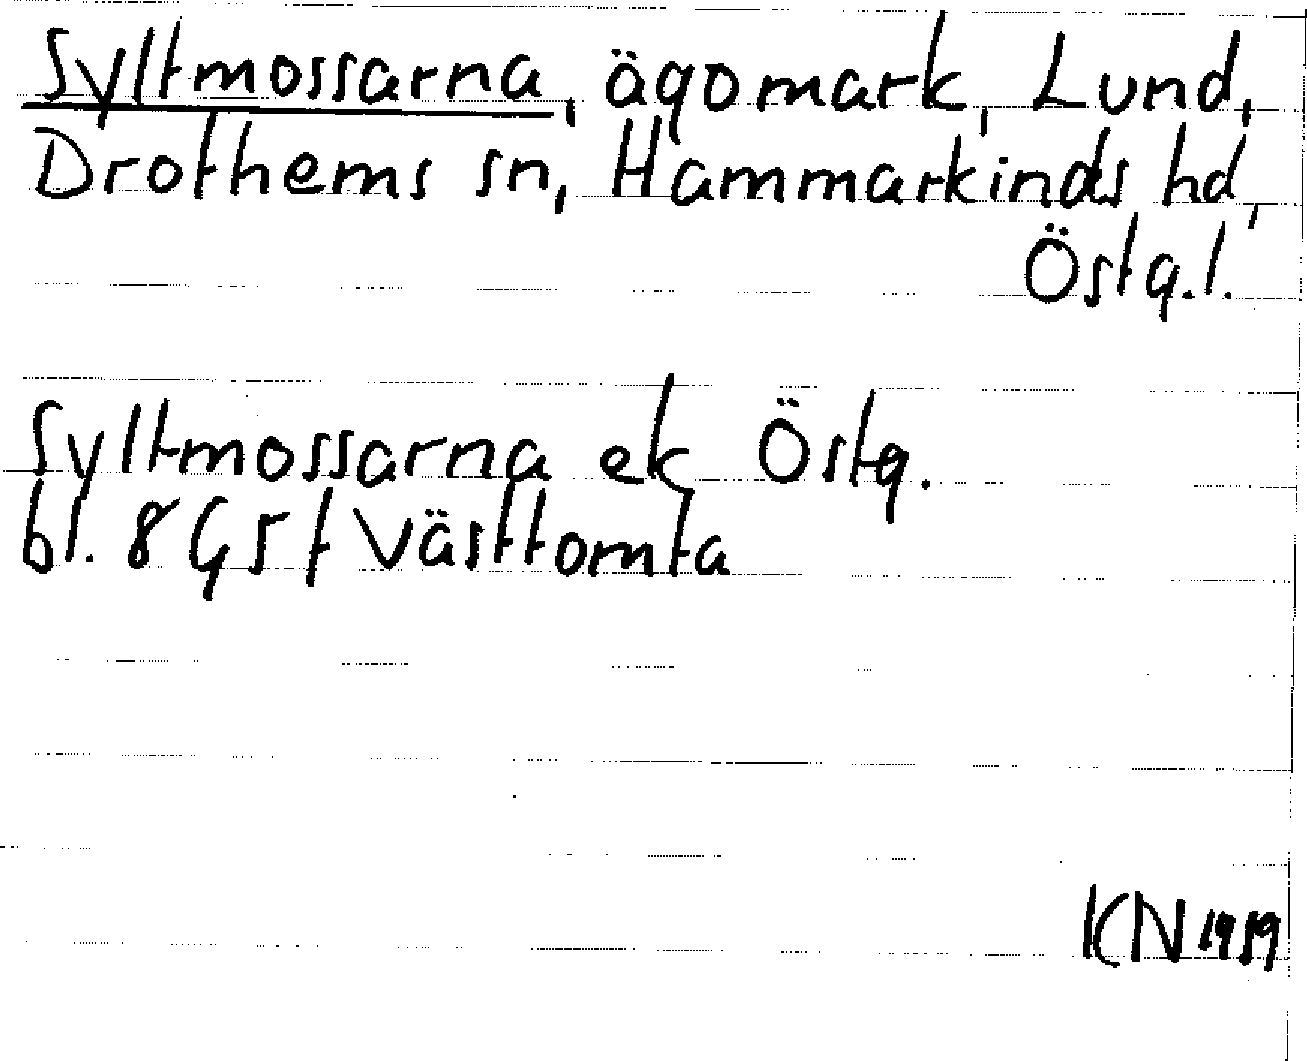 Syltmossarna, ägomark, Lund,
Drothems sn, Hammarkinds hd,
Östg.l.
Syltmossarna ek Östg.
bl. 8G5f Västtomta
KN 1959